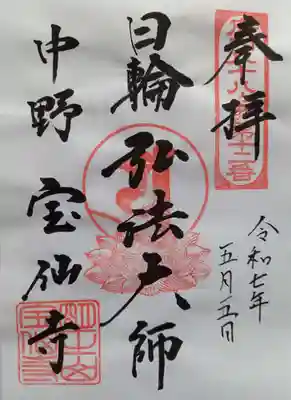 奉拝
令和七年
五月五日
日輪弘法大師
中野 宝仙寺